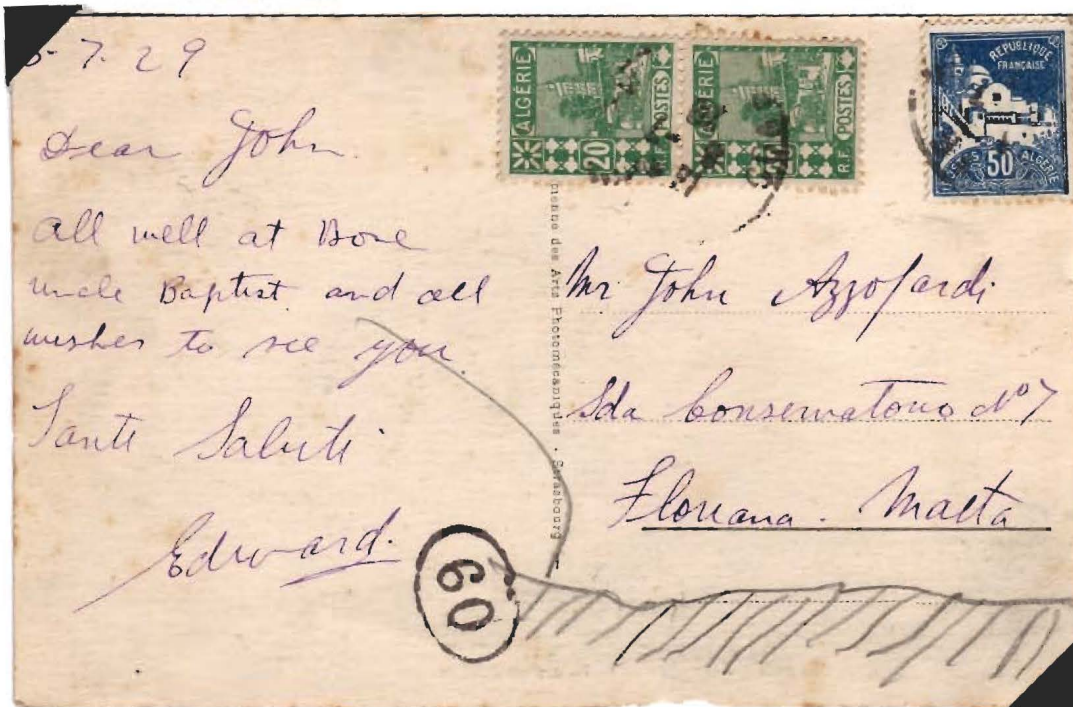 5-7-29
Dear John
All well at Bone
uncle Baptist and all
wishes to see you.
Tanti Saluti
Edward.
ALGÉRIE
20
R.F. POSTES
ALGÉRIE
R.F. POSTES
REPUBLIQUE
FRANÇAISE
50
ALGÉRIE
des Arts Photomécaniques - Strasbourg
Mr John Azzopardi
Sda Conservatorio No 7
Floriana. Malta
60